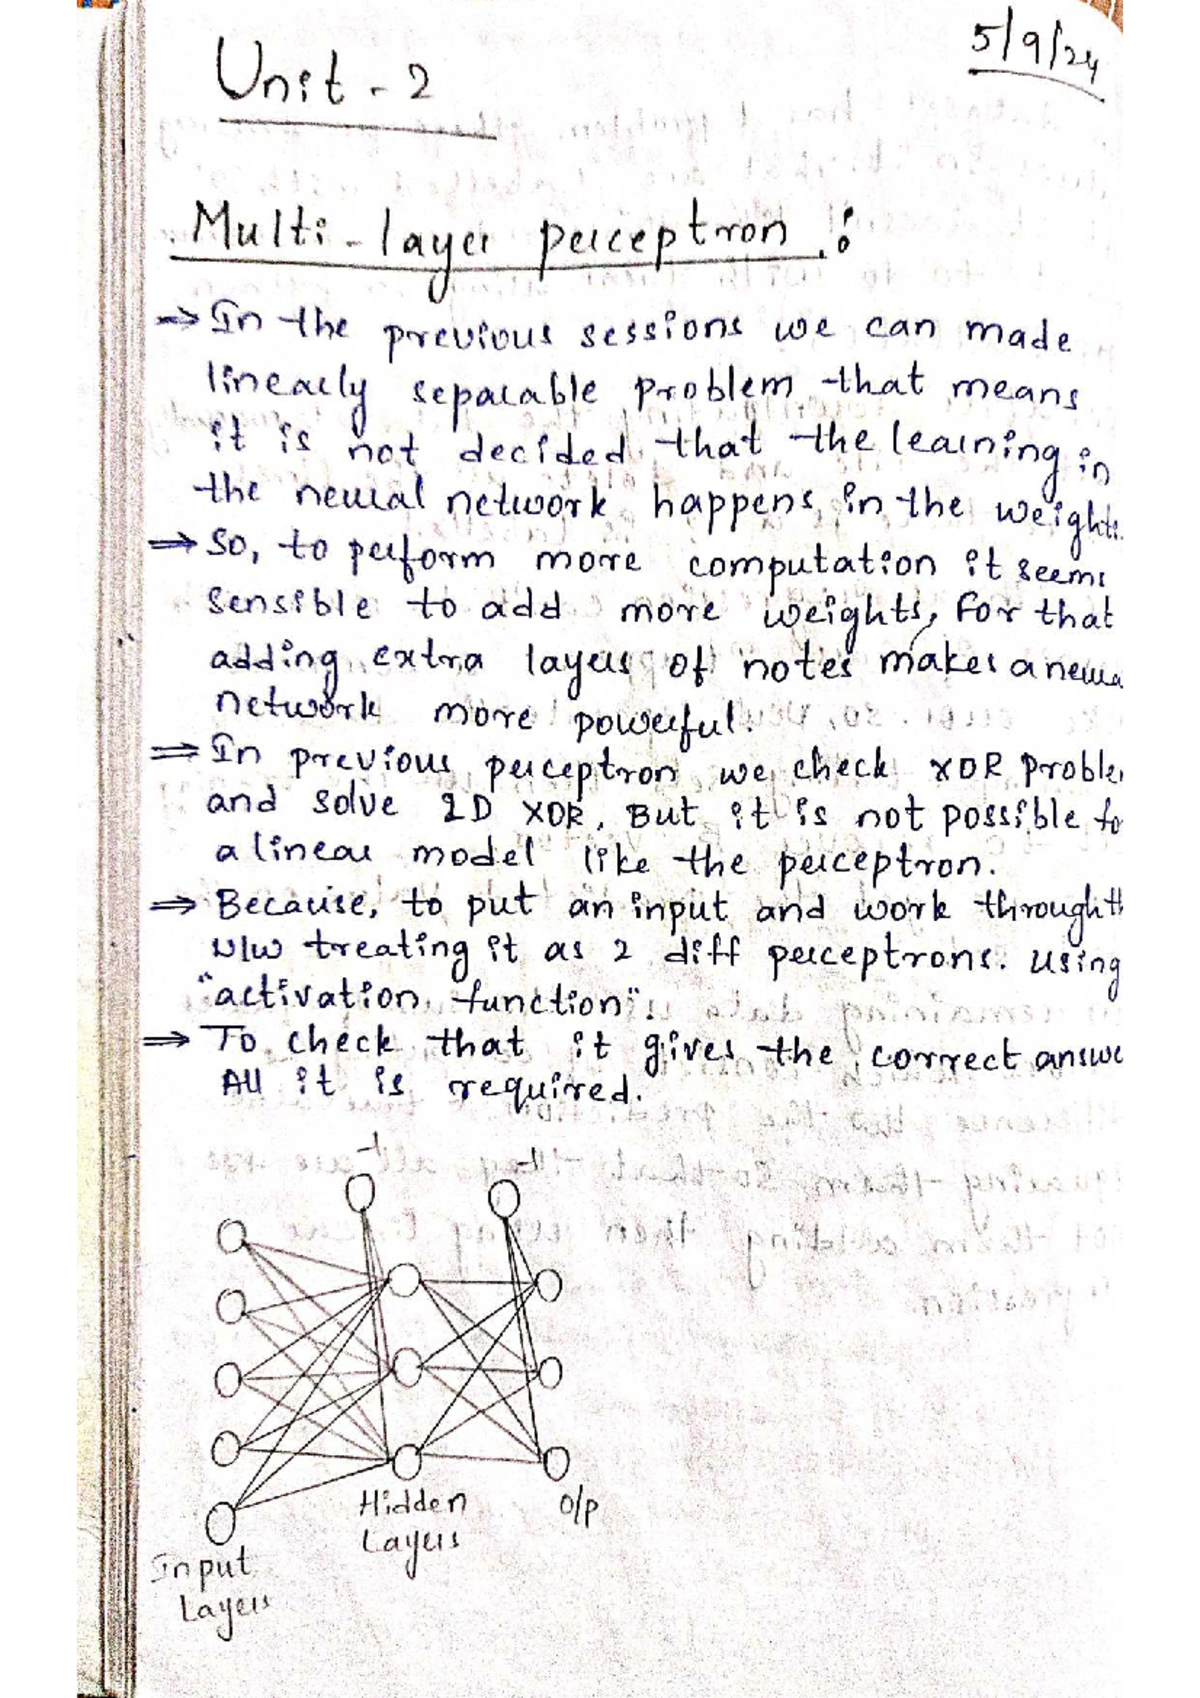 5/9/24
Unit - 2
Multi-layer perceptron :
⇒ In the previous sessions we can made
linearly separable problem that means
it is not decided that the learning in
the neural network happens in the weights.
⇒ So, to perform more computation it seems
sensible to add more weights, For that
adding extra layers of notes makes a neura
network more powerful.
⇒ In previous perceptron we check XOR proble
and solve 2D XOR, But it is not possible to
a linear model like the perceptron.
⇒ Because, to put an input and work through th
N/W treating it as 2 diff perceptrons. Using
"activation function".
⇒ To check that it gives the correct answe
All it is required.
-1 -1
Hidden
Layers
O/p
Input
Layers